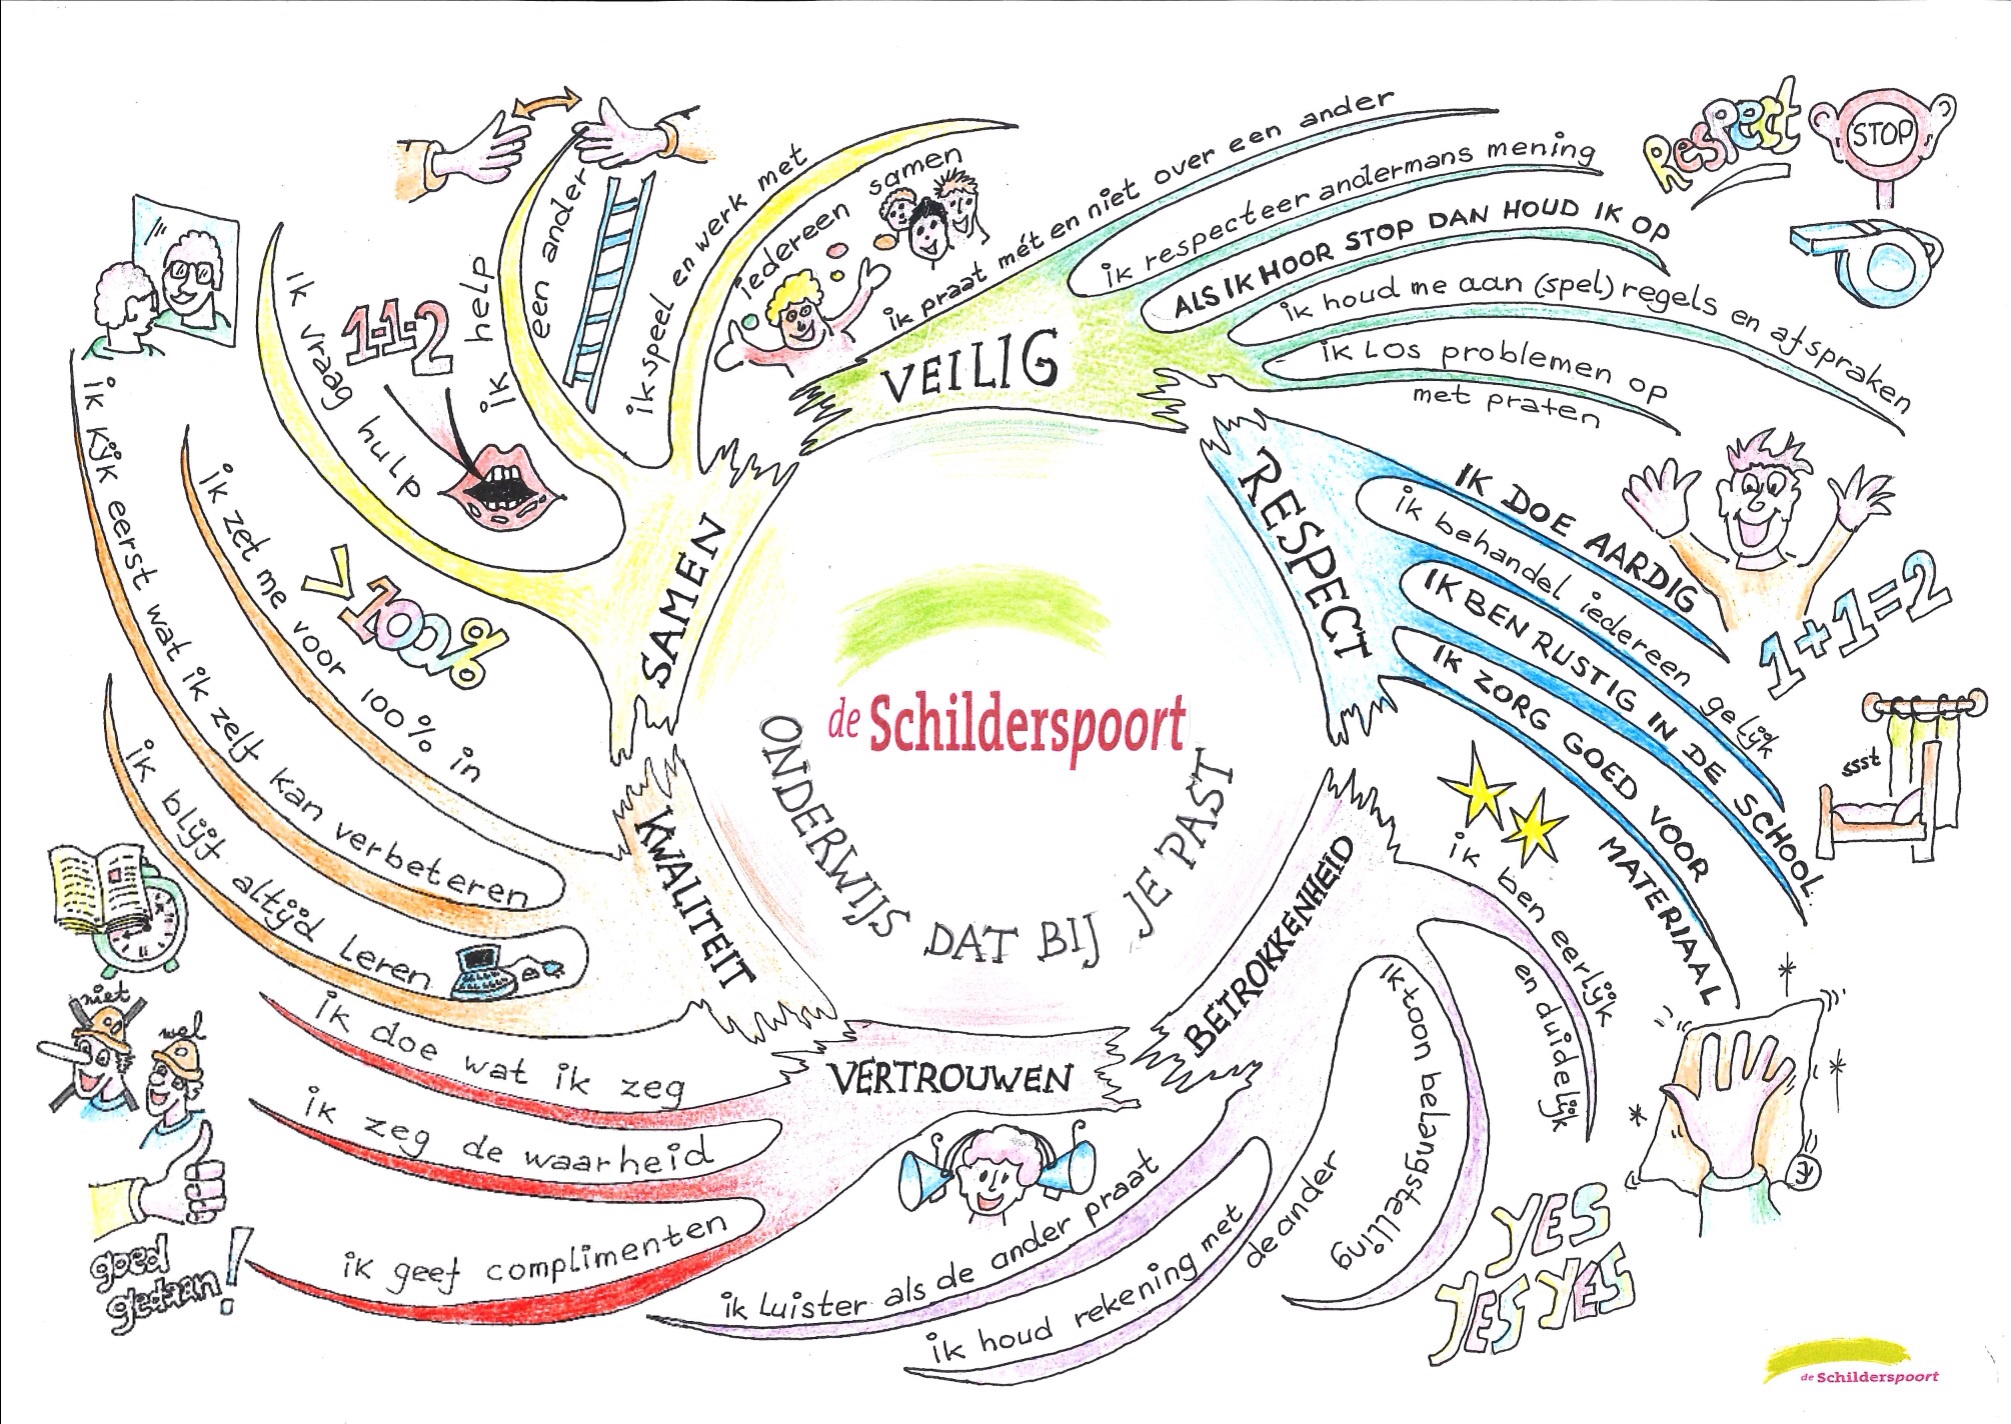 de Schilderspoort
ONDERWIJS DAT BIJ JE PAST
VEILIG
ik praat mét en niet over een ander
ik respecteer andermans mening
ALS IK HOOR STOP DAN HOUD IK OP
ik houd me aan (spel) regels en afspraken
ik LOS problemen op
met praten
Respect
STOP
RESPECT
IK DOE AARDIG
ik behandel iedereen gelijk
IK BEN RUSTIG IN DE SCHOOL
IK ZORG GOED VOOR
MATERIAAL
1+1=2
ssst
BETROKKENHEID
ik ben eerlijk
en duidelijk
ik toon belangstelling
ik houd rekening met
de ander
ik luister als de ander praat
YES
YES YES
VERTROUWEN
ik doe wat ik zeg
ik zeg de waarheid
ik geef complimenten
niet
wel
goed
gedaan!
KWALITEIT
ik zet me voor 100% in
ik kijk eerst wat ik zelf kan verbeteren
ik blijf altijd leren
>100%
SAMEN
ik vraag hulp
ik help
een ander
ik speel en werk met
iedereen samen
1-1-2
de Schilderspoort